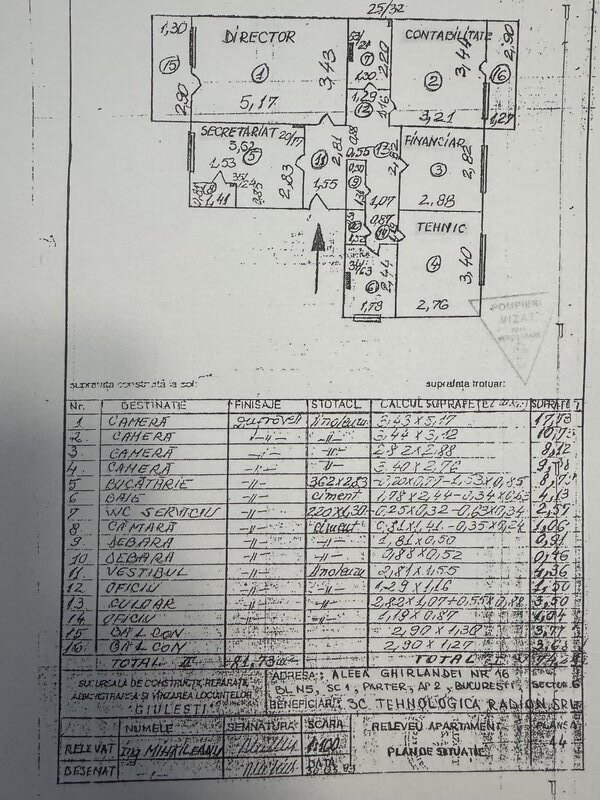 25/32
1,30 DIRECTOR CONTABILITATE
15 1 3,43 7 2,20 2 3,44 16 2,90
2,90 5,17 1,30 3,21 1,27
1,29
12 1,16
SECRETARIAT 20/77 FINANCIAR
3,62 5 11 2,81 0,55 13 2,82 3 2,82
1,53 2,83 0,50 9
35/24 0,85 1,55 1,07 2,88
0,81 8 1,41
0,87 14 TEHNIC
34/63 2,44 4 3,40
6
1,78 2,76
POMPIERI
VIZAT
suprafața construită la sol: suprafața trotuar:
Nr. DESTINATIE FINISAJE STOTACI CALCUL SUPRAFETE
1 CAMERĂ linoleum 3,43 x 5,17 17,73
2 CAMERĂ -"- -"- 3,44 x 3,12
3 CAMERĂ -"- -"- 2,82 x 2,88 8,12
4 CAMERĂ -"- -"- 3,40 x 2,76
5 BUCĂTĂRIE -"- 362x283 -0,20x0,77-1,53x0,85
6 BAIE -"- ciment 1,78 x 2,44-0,34x0,63 4,13
7 WC SERVICIU -"- 220x1,30 -0,25x0,32-0,63x0,34 2,57
8 CĂMARĂ -"- ciment 0,81x1,41-0,35x0,24 1,06
9 DEBARA -"- -"- 1,81 x 0,50 0,91
10 DEBARA -"- -"- 0,88 x 0,52 0,46
11 VESTIBUL -"- linoleum 2,81 x 1,55 4,36
12 OFICIU -"- -"- 1,29 x 1,16 1,50
13 CULOAR -"- -"- 2,82x1,07+0,55x0,88 3,50
14 OFICIU -"- -"- 1,19 x 0,87 1,04
15 BALCON -"- -"- 2,90 x 1,30 3,77
16 BALCON -"- -"- 2,90 x 1,27 3,68
TOTAL II = 81,73 TOTAL I
SUCURSALA DE CONSTRUCȚII, REPARAȚII,
ADMINISTRAREA ȘI VÎNZAREA LOCUINȚELOR
GIULEȘTI
ADRESA: ALEEA GHIRLANDEI NR 16
BL N5, SC 1, PARTER, AP 2, BUCUREȘTI SECTOR 6
BENEFICIAR: SC TEHNOLOGICA RADION SRL
NUMELE SEMNĂTURA SCARA RELEVEU APARTAMENT PLANȘA
RELEVAT Ing MIHĂILEANU 1:100 PLAN DE SITUAȚIE 44
DESENAT DATA